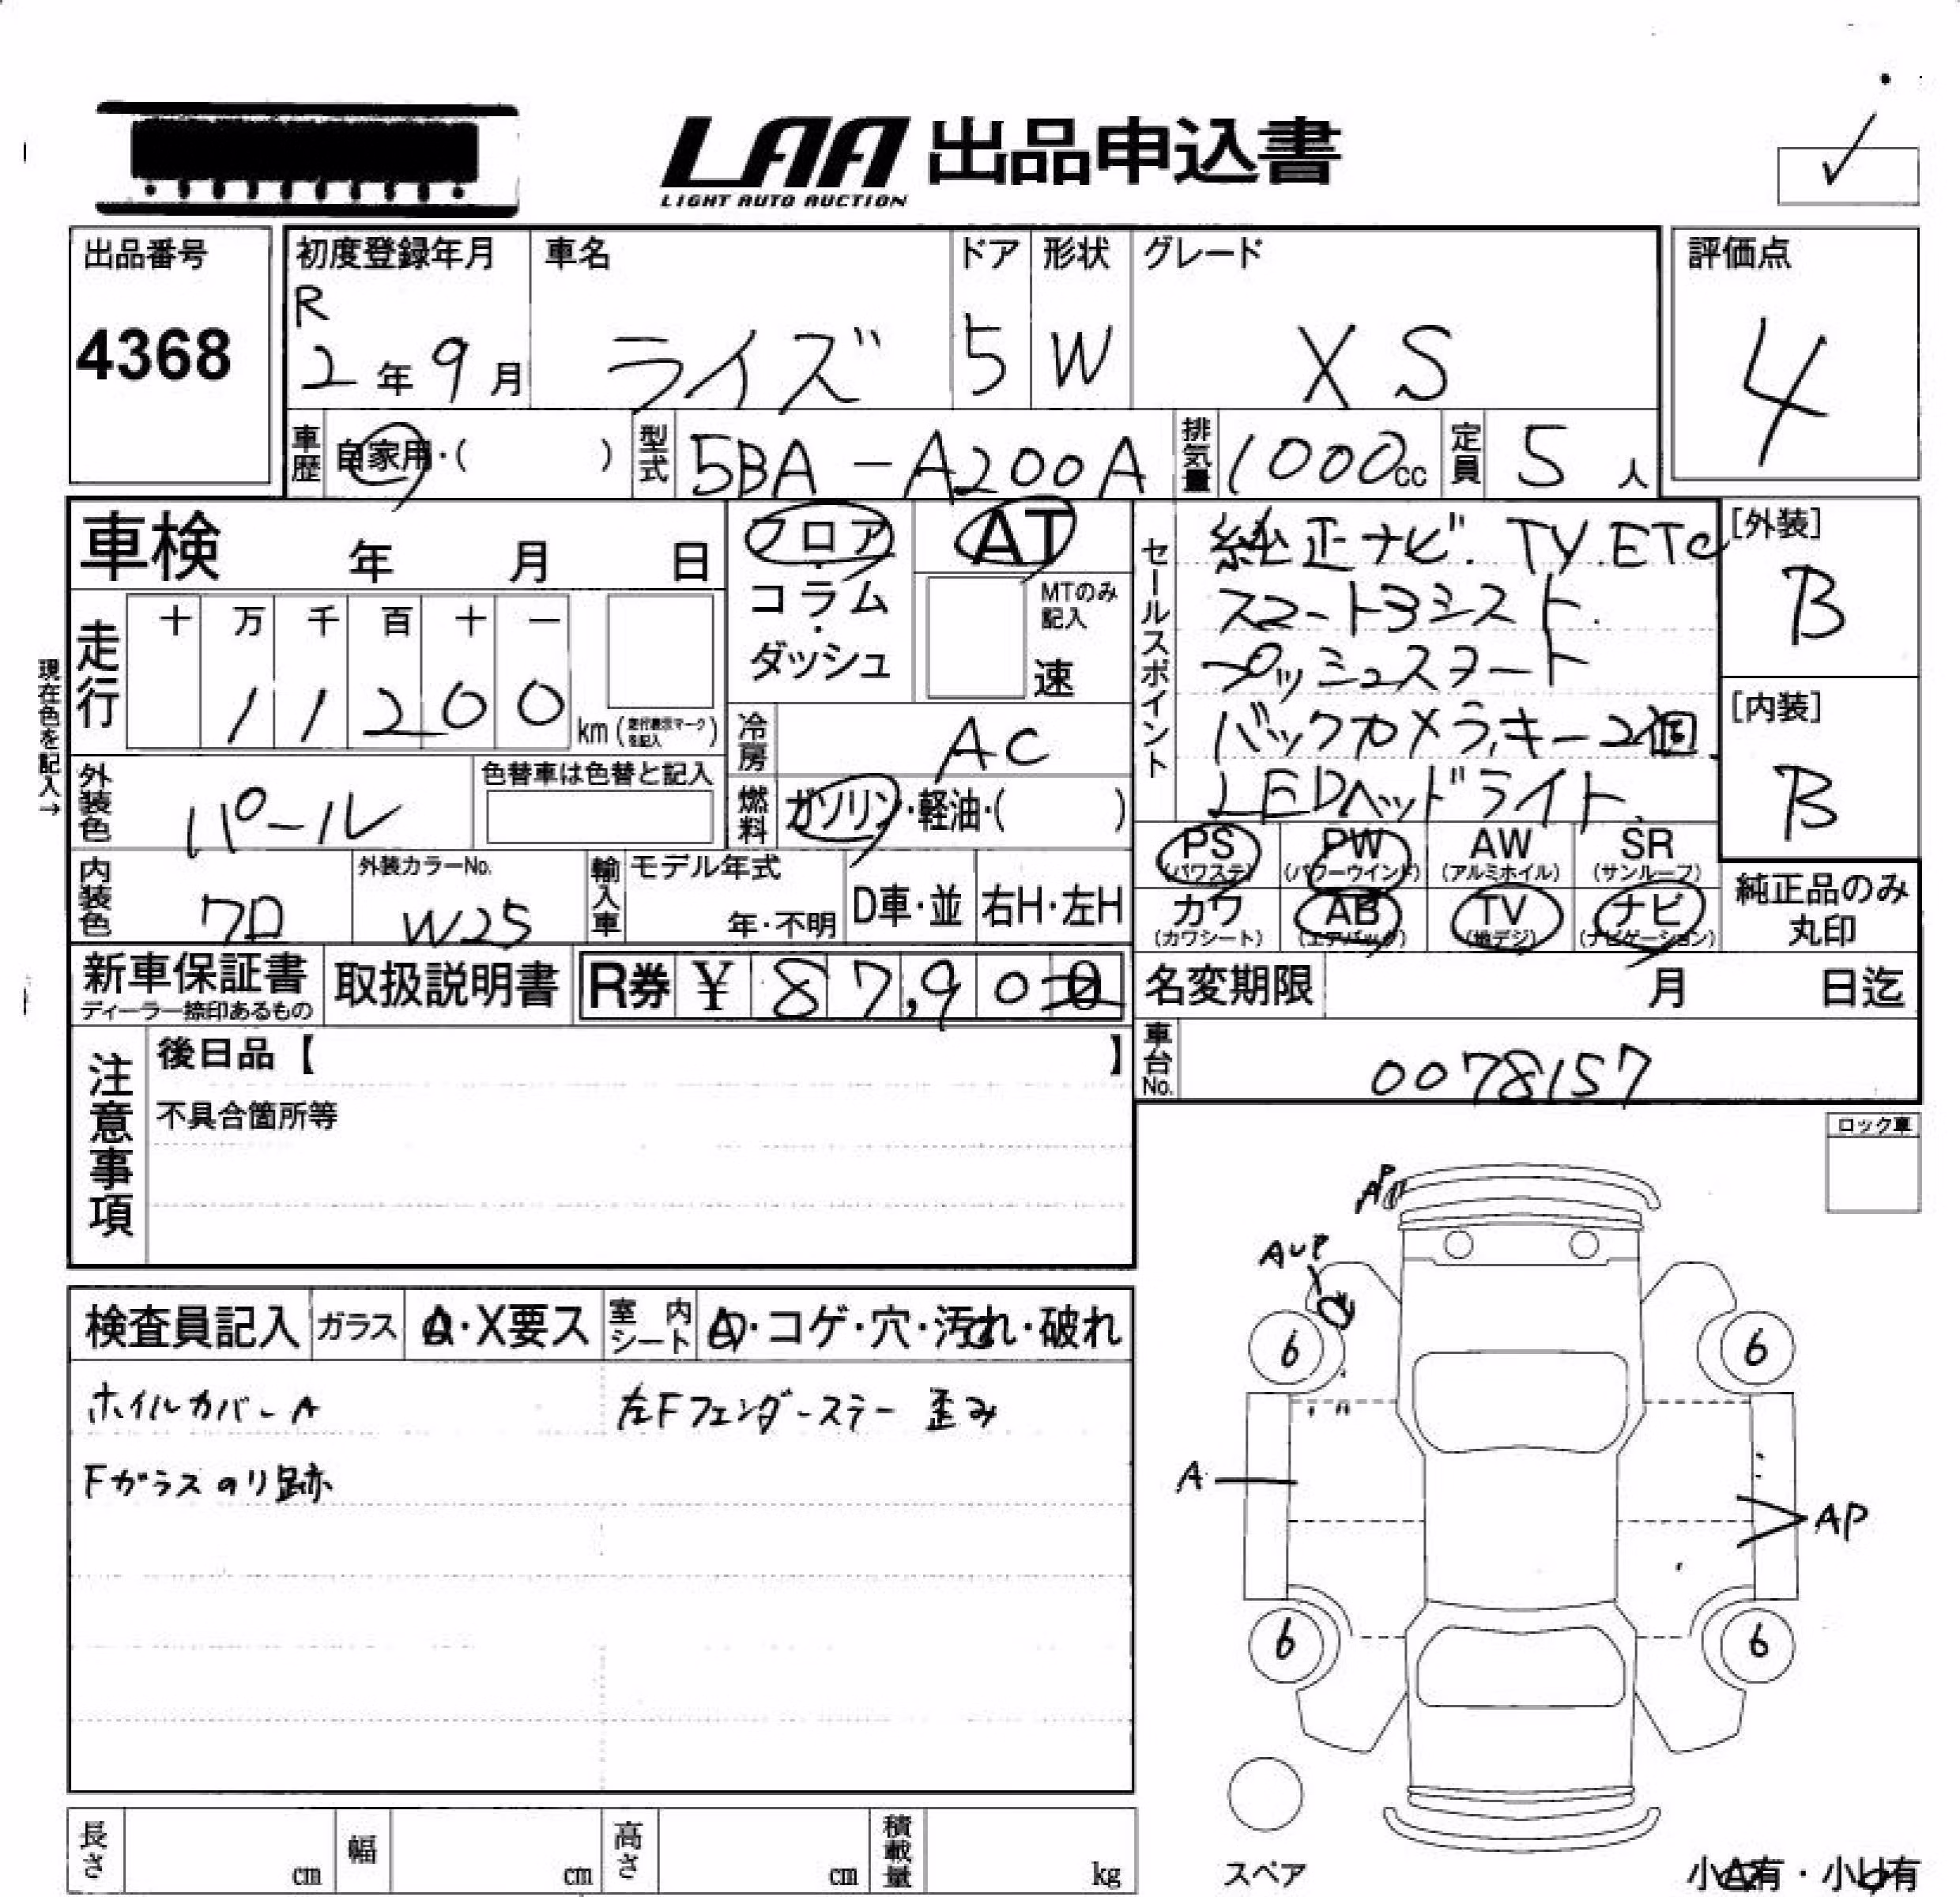 LAA 出品申込書
LIGHT AUTO AUCTION
✓
出品番号
4368
初度登録年月
R
2年9月
車名
ライズ
ドア
5
形状
W
グレード
XS
評価点
4
車歴
自家用・( )
型式
5BA-A200A
排気量
1000cc
定員
5人
車検 年 月 日
走行
十 万 千 百 十 一
1 1 2 0 0
km(走行表示マークを記入)
現在色を記入→
フロア・
コラム・
ダッシュ
AT
MTのみ
記入
速
冷房
AC
燃料
ガソリン・軽油・( )
セールスポイント
純正ナビ.TV.ETC
スマートアシスト.
プッシュスタート
バックカメラ.キー2個.
LEDヘッドライト.
[外装]
B
[内装]
B
外装色
パール
色替車は色替と記入
内装色
クロ
外装カラーNo.
W25
輸入車
モデル年式
年・不明
D車・並
右H・左H
PS
(パワステ)
PW
(パワーウインド)
AW
(アルミホイル)
SR
(サンルーフ)
カワ
(カワシート)
AB
(エアバック)
TV
(地デジ)
ナビ
(ナビゲーション)
純正品のみ
丸印
新車保証書
ディーラー捺印あるもの
取扱説明書
R券 ¥ 8 7,9 0 0
名変期限 月 日迄
車台No.
0078157
注意事項
後日品【 】
不具合箇所等
ロック車
検査員記入
ガラス
A・X要ス
室内シート
A・コゲ・穴・汚れ・破れ
ホイルカバーA
左Fフェンダーステー 歪み
Fガラスのり跡
AP
AUP
6
6
A
AP
6
6
スペア
小A有・小U有
長さ cm
幅 cm
高さ cm
積載量 kg